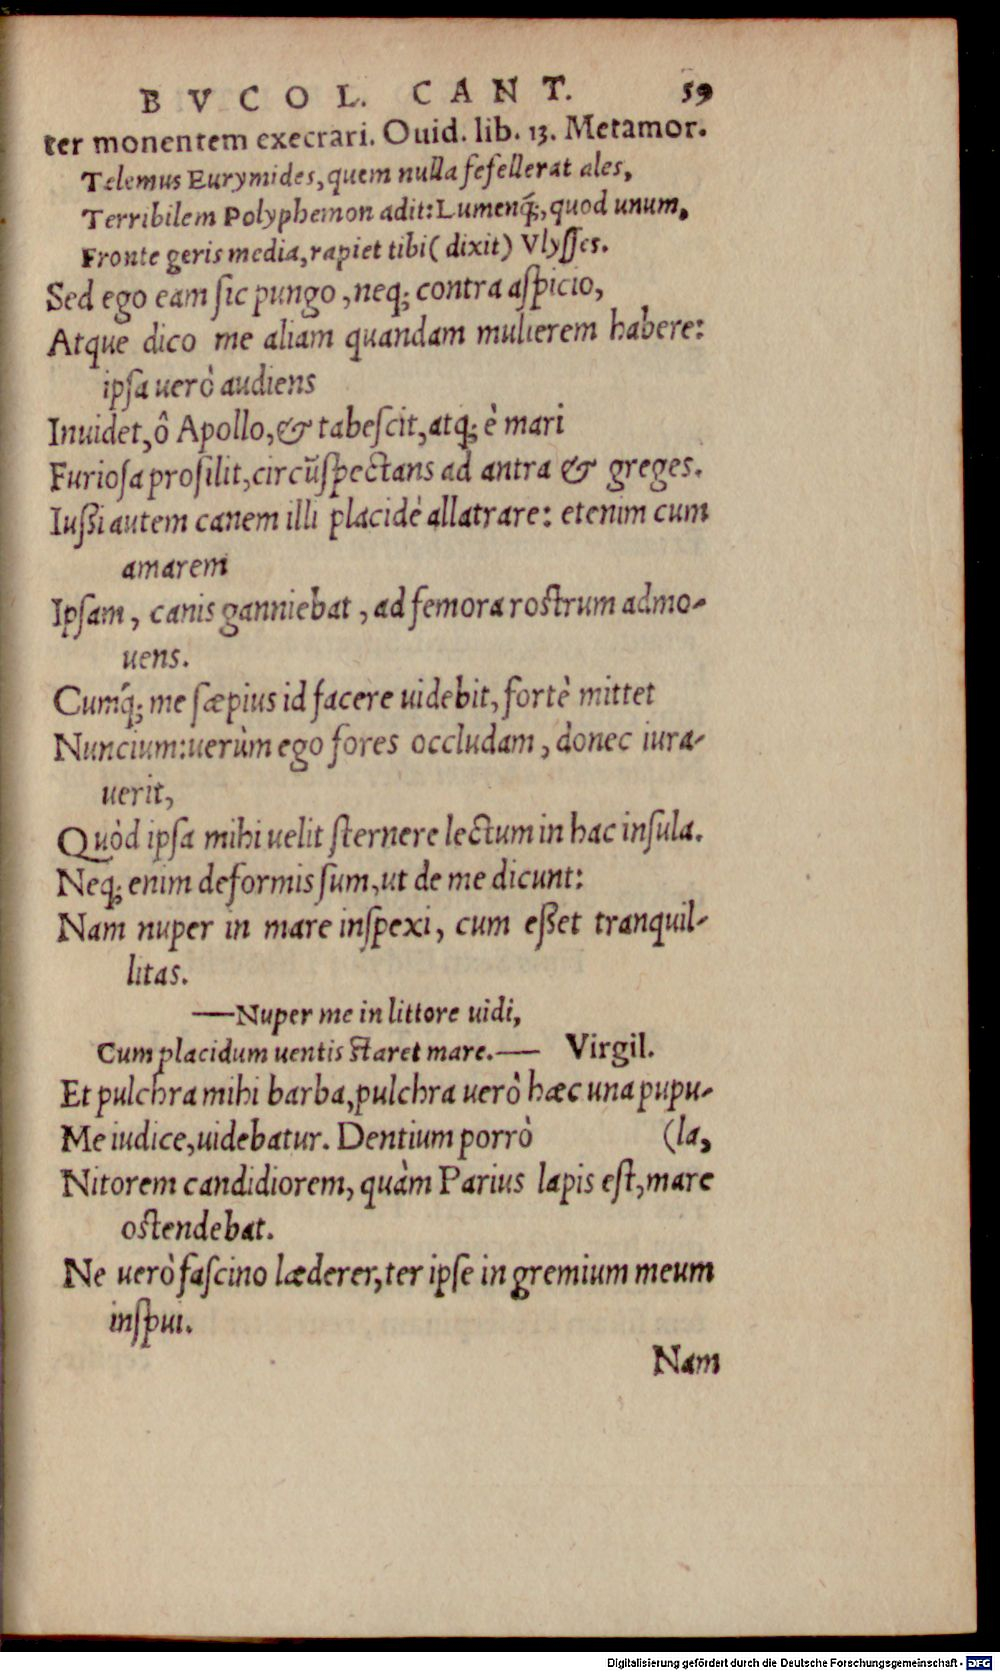 BVCOL. CANT. 59
ter monentem execrari. Ouid. lib. 13. Metamor.
Telemus Eurymides, quem nulla fefellerat ales,
Terribilem Polyphemon adit: Lumenq́;, quod unum,
Fronte geris media, rapiet tibi (dixit) Vlyſſes.
Sed ego eam ſic pungo, neq; contra aſpicio,
Atque dico me aliam quandam mulierem habere:
ipſa uerò audiens
Inuidet, ô Apollo, & tabeſcit, atq; è mari
Furioſa proſilit, circũſpectans ad antra & greges.
Iußi autem canem illi placidè allatrare: etenim cum
amarem
Ipſam, canis ganniebat, ad femora roſtrum admo-
uens.
Cumq́; me ſæpius id facere uidebit, fortè mittet
Nuncium: uerùm ego fores occludam, donec iura-
uerit,
Quòd ipſa mihi uelit ſternere lectum in hac inſula.
Neq; enim deformis ſum, ut de me dicunt:
Nam nuper in mare inſpexi, cum eßet tranquil-
litas.
—Nuper me in littore uidi,
Cum placidum uentis ſtaret mare.— Virgil.
Et pulchra mihi barba, pulchra uerò hæc una pupu-
Me iudice, uidebatur. Dentium porrò (la,
Nitorem candidiorem, quàm Parius lapis eſt, mare
oſtendebat.
Ne uerò faſcino læderer, ter ipſe in gremium meum
inſpui.
Nam
Digitalisierung gefördert durch die Deutsche Forschungsgemeinschaft - DFG